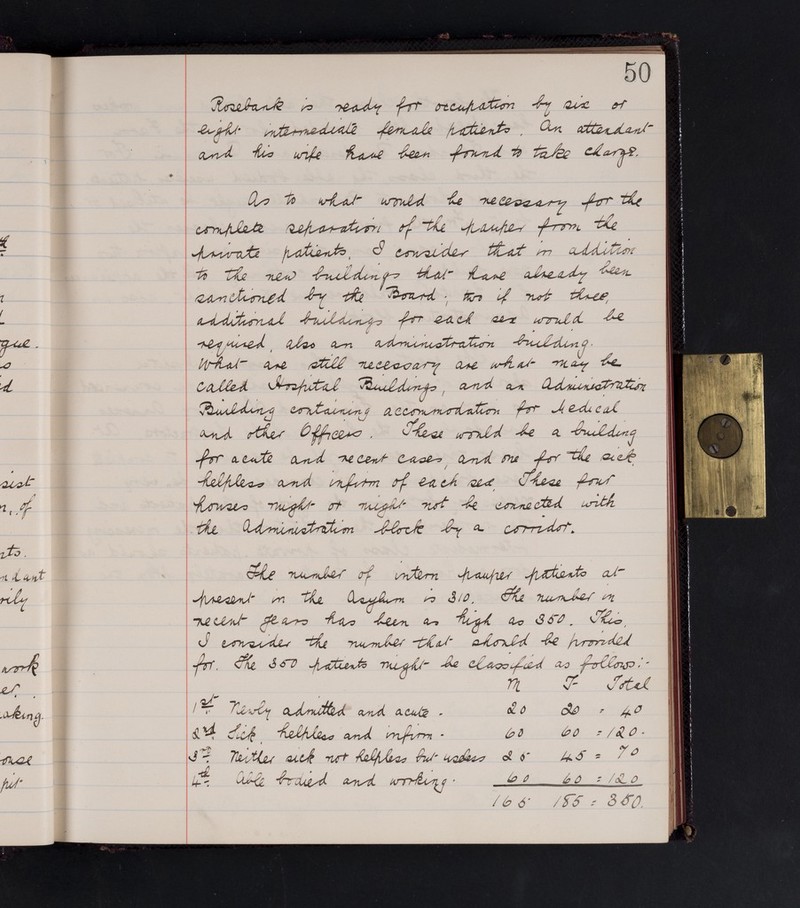 50
Rosebank is ready for occupation by six or
eight intermediate female patients. An attendant
and his wife have been found to take charge.
As to what would be necessary for the
complete separation of the pauper from the
private patients, I consider that in addition
to the new buildings that have already been
sanctioned by the Board; two if not three,
additional buildings for each sex would be
required, also an administration building.
What are still necessary are what may be
called Hospital Buildings, and an Administration
Building containing accommodation for Medical
and other Officers. These would be a building
for acute and recent cases, and one for the sick,
helpless and infirm of each sex. These four
houses might or might not be connected with
the Administration block by a corridor.
The number of intern pauper patients at
present in the Asylum is 310. The number in
recent years has been as high as 350. This,
I consider the number that should be provided
for. The 350 patients might be classified as follows:-
M F Total
1st Newly admitted and acute - 20 20 = 40
2nd Sick, helpless and infirm - 60 60 = 120.
3rd Neither sick nor helpless but useless 25 45 = 70
4th Able bodied and working. 60 60 = 120
165 185 = 350.